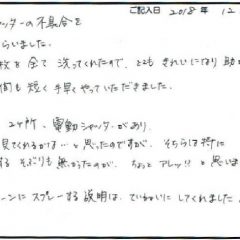 ご記入日 2018 年 12
ッターの不具合を
らいました。
枚を全て 洗ってくれたので、とても きれいになり 助か
間も 短く 手早く やっていただきました。
2ヶ所、電動シャッターがあり、
見てくれるかな…と思ったのですが、そちらは特に
する そぶりも 無かったので、ちょっと アレッ!! と思いま
ーンに スプレーする 説明は、ていねいに してくれました